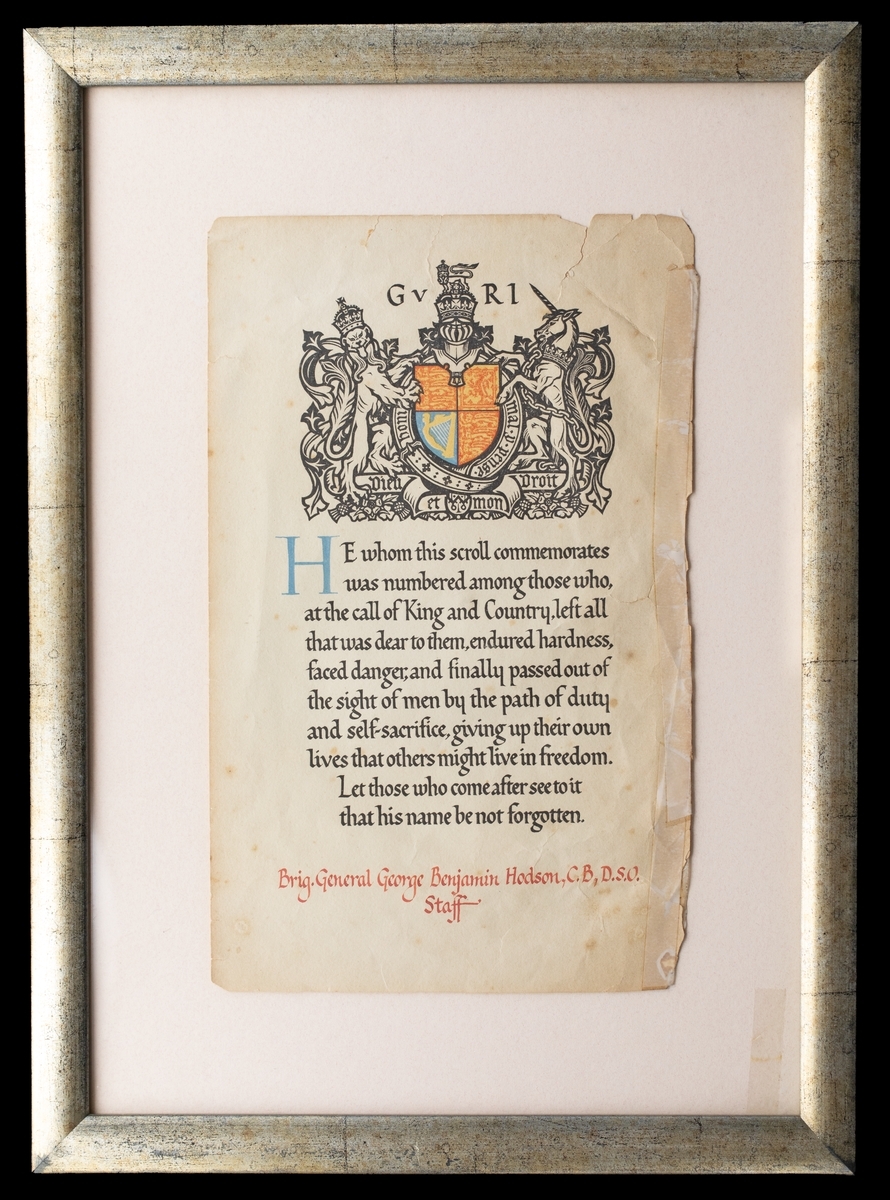 G V RI
Honi mal·y·pense
Dieu Droit
et mon
HE whom this scroll commemorates
was numbered among those who,
at the call of King and Country, left all
that was dear to them, endured hardness,
faced danger, and finally passed out of
the sight of men by the path of duty
and self-sacrifice, giving up their own
lives that others might live in freedom.
Let those who come after see to it
that his name be not forgotten.
Brig. General George Benjamin Hodson, C.B, D.S.O.
Staff